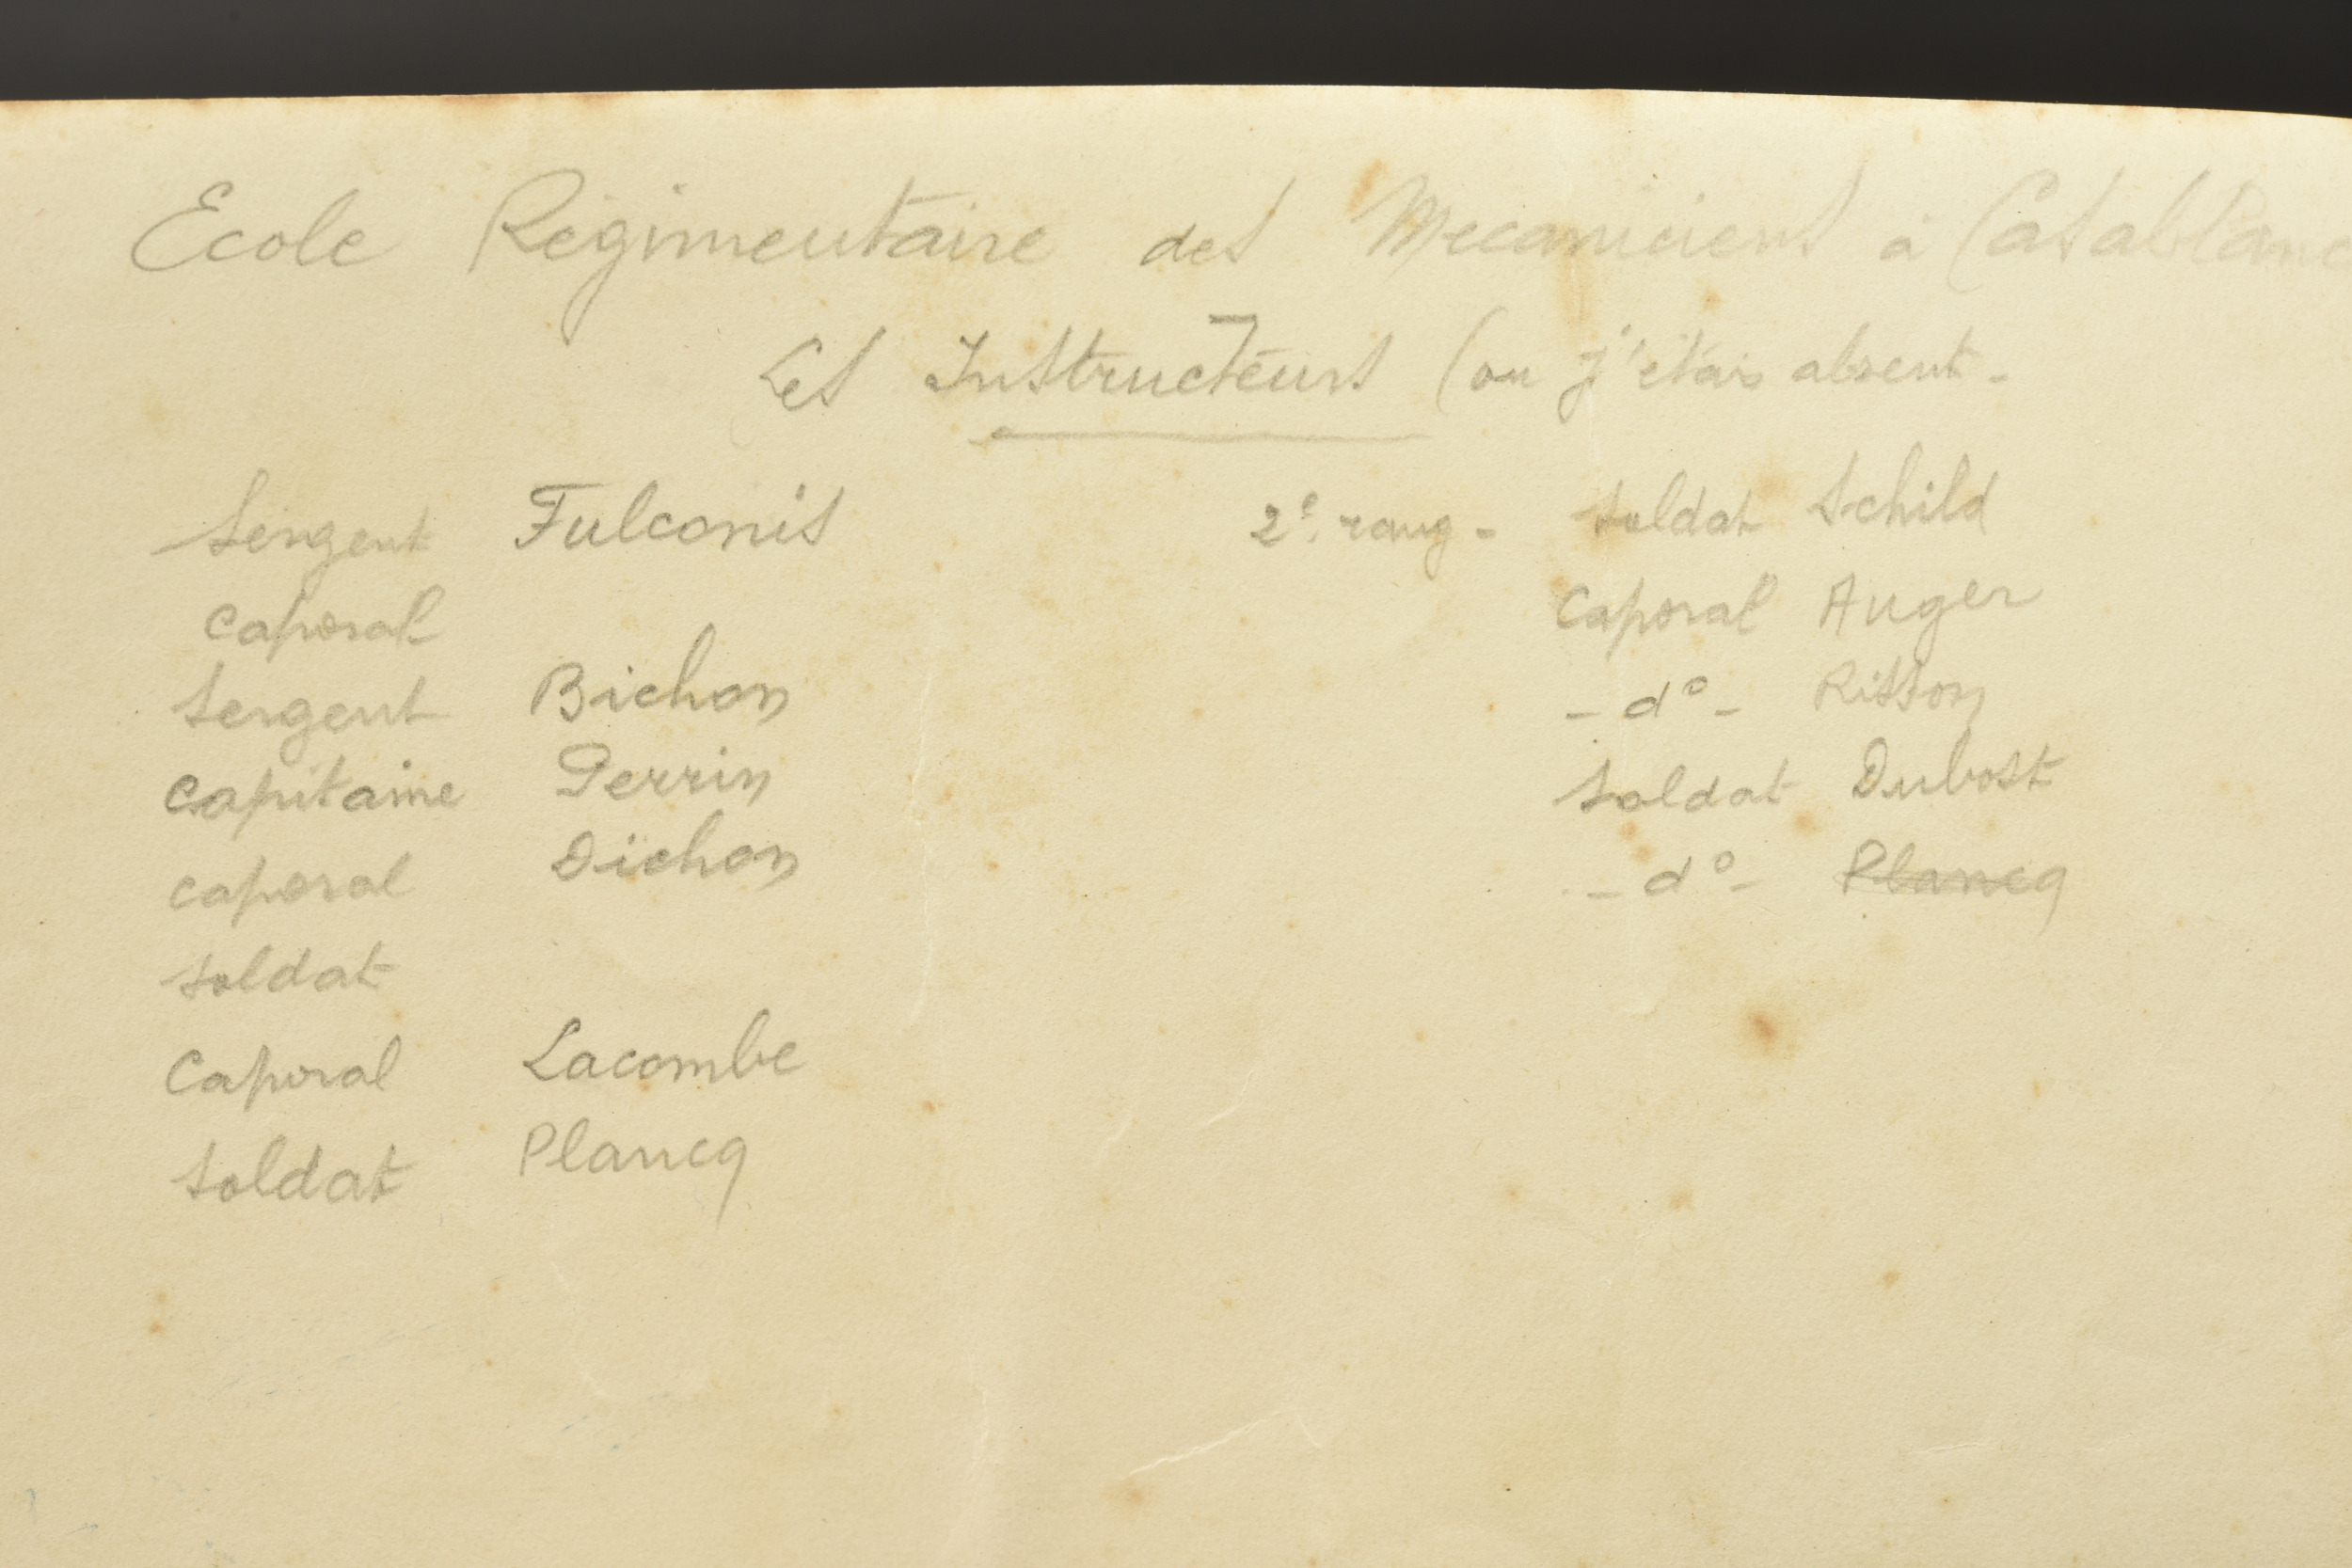 Ecole Régimentaire des Mecaniciens à Casablanc
Les Instructeurs (ou j'étais absent -
Sergent Fulconis
Caporal
Sergent Bichon
Capitaine Perrin
Caporal Dichon
Soldat
Caporal Lacombe
Soldat Plancq
2e rang - Soldat Schild
Caporal Auger
- do - Risson
Soldat Dubost
- do - Plancq